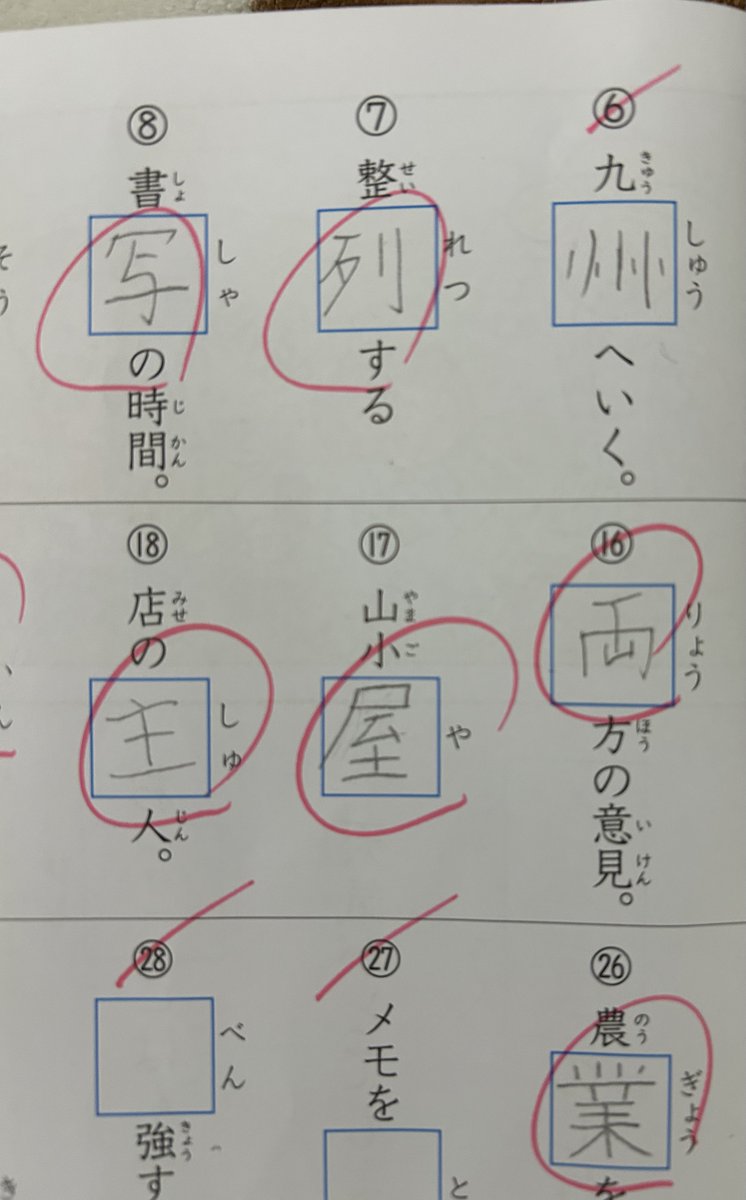 ⑥九州へいく。
きゅう しゅう
⑦整列する
せい れつ
⑧書写の時間。
しょ しゃ じ かん
⑯両方の意見。
りょう ほう い けん
⑰山小屋
やま ご や
⑱店の主人。
みせ しゅ じん
㉖農業を
のう ぎょう
㉗メモを
と
㉘強す
べん きょう